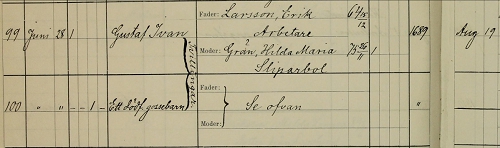 Fader: Larsson, Erik 64 18/12
99 Juni 28 1 Gustaf Ivan Arbetare 1689 Aug 19
Moder: Grån, Hilda Maria 75 26/11 1
Sliparbol
Tvillingar
Fader:
100 " " - - 1 - Ett dödf. gossebarn Se ofvan "
Moder: